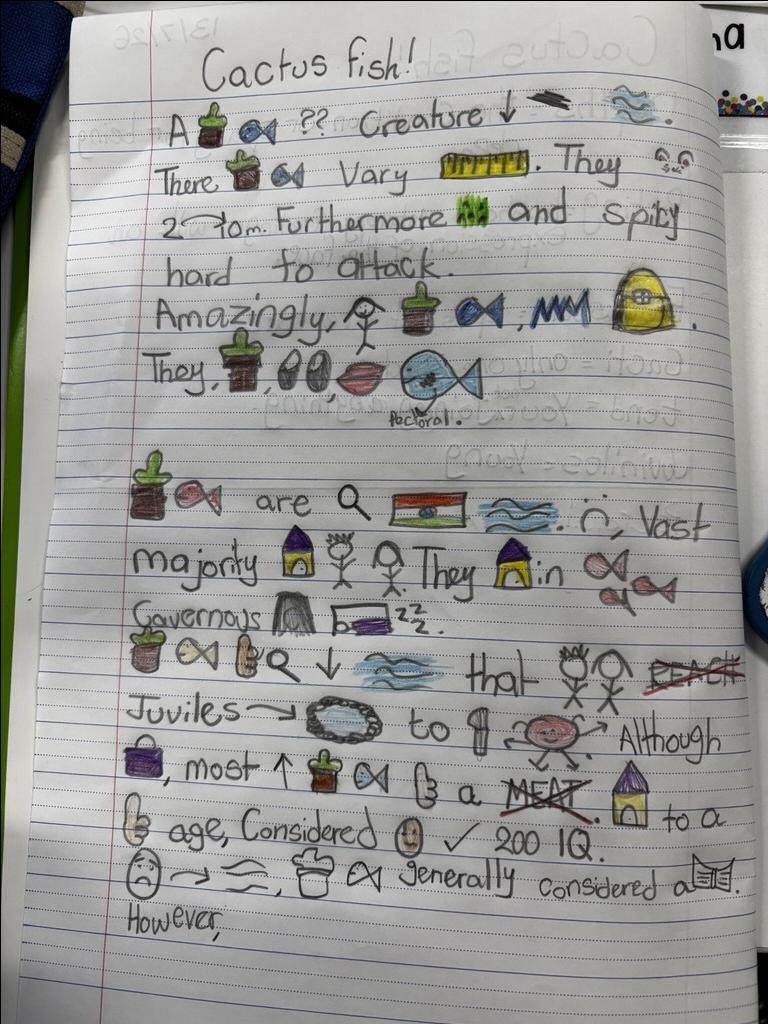 13/7/26
Cactus fish!
A ?? Creature ↓
There Vary . They
2 → 10m. Furthermore and spiky
hard to attack.
Amazingly, , .
They, , ,
Pectoral.
are . , Vast
majority They in
Cavernous z z z.
↓ that PEACH
Juviles → to Although
, most ↑ a MEAT. to a
age, Considered ✓ 200 IQ.
→ , generally considered a .
However,